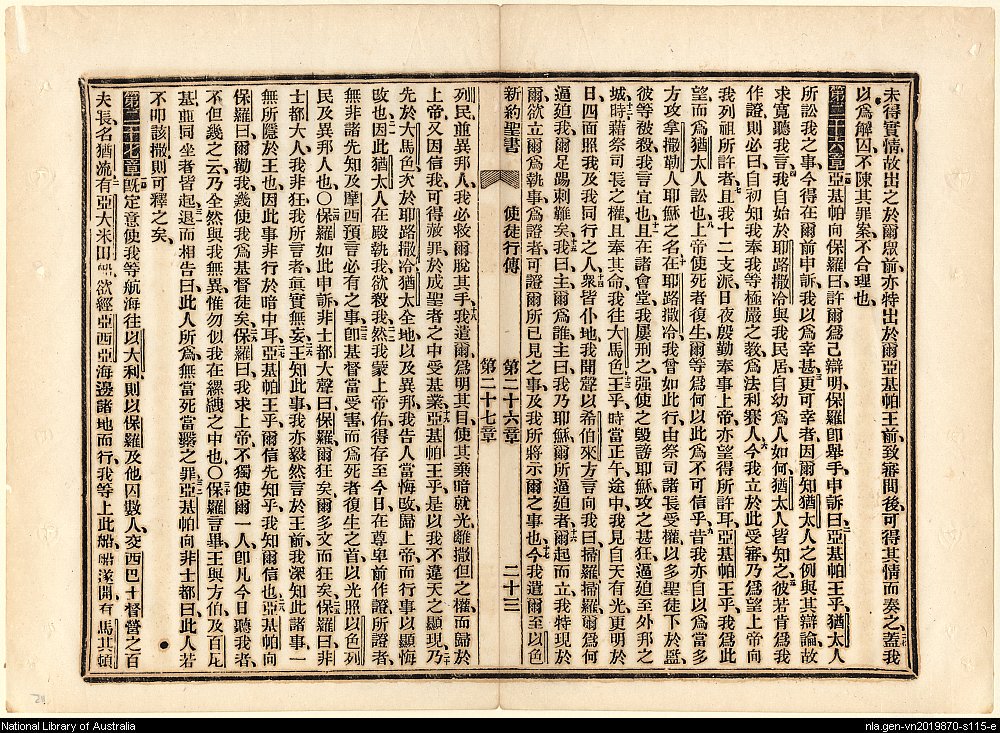 未得實情故出之於爾眾前亦特出於爾亞基帕王前致審問後可得其情而奏之蓋我
以為解囚不陳其罪案不合理也
第二十六章亞基帕向保羅曰許爾為己辯明保羅卽舉手申訴曰亞基帕王乎猶太人
所訟我之事今得在爾前申訴我以為幸甚更可幸者因爾知猶太人之例與其辯論故
求寬聽我言我自始於耶路撒冷與我民居自幼為人如何猶太人皆知之彼若肯為我
作證則必曰自初知我奉我等極嚴之教為法利賽人今我立於此受審乃為望上帝向
我列祖所許者且我十二支派日夜殷勤奉事上帝亦望得所許耳亞基帕王乎我為此
望而為猶太人訟也上帝使死者復生爾等為何以此為不可信乎昔我亦自以為當多
方攻拿撒勒人耶穌之名在耶路撒冷我曾如此行由祭司諸長受權以多聖徒下於監
彼等被殺我言宜也且在諸會堂我屢刑之强使之毀謗耶穌攻之甚狂逼迫至外邦之
城時藉祭司長之權且奉其命我往大馬色王乎時當正午途中我見自天有光更明於
日四面照我及我同行之人衆皆仆地我聞聲以希伯來方言向我曰掃羅掃羅爾為何
逼迫我爾足踢刺難矣我曰主爾為誰主曰我乃耶穌爾所逼迫者爾起而立我特現於
爾欲立爾為執事為證者可證爾所已見之事及我所將示爾之事也今我遣爾至以色
新約聖書 使徒行傳 第二十六章 第二十七章 二十三
列民並異邦人我必救爾脫其手我遣爾為明其目使其棄暗就光離撒但之權而歸於
上帝又因信我可得赦罪於成聖者之中受基業亞基帕王乎是以我不違天之顯現乃
先於大馬色次於耶路撒冷猶太全地以及異邦我告人當悔改歸上帝而行事以顯悔
改也因此猶太人在殿執我欲殺我然我蒙上帝佑得存至今日在尊卑前作證所證者
無非諸先知及摩西預言必有之事卽基督當受害而為死者復生之首以光照以色列
民及異邦人也〇保羅如此申訴非士都大聲曰保羅爾狂矣爾多文而狂矣保羅曰非
士都大人我非狂我所言者真實無妄王知此事我亦毅然言於王前我深知此諸事一
無所隱於王也因此事非行於暗中耳亞基帕王乎爾信先知乎我知爾信也亞基帕向
保羅曰爾勸我幾使我為基督徒矣保羅曰我求上帝不獨使爾一人卽凡今日聽我者
不但幾之云乃全然與我無異惟勿似我在縲絏之中也〇保羅言畢王與方伯及百尼
基並同坐者皆起退而相告曰此人所為無當死當繫之罪亞基帕向非士都曰此人若
不叩該撒則可釋之矣
第二十七章旣定意使我等航海往以大利則以保羅及他囚數人交西巴士督營之百
夫長名猶流有亞大米田船欲經亞西亞海邊諸地而行我等上此船船遂開有馬其頓
National Library of Australia
nla.gen-vn2019870-s115-e